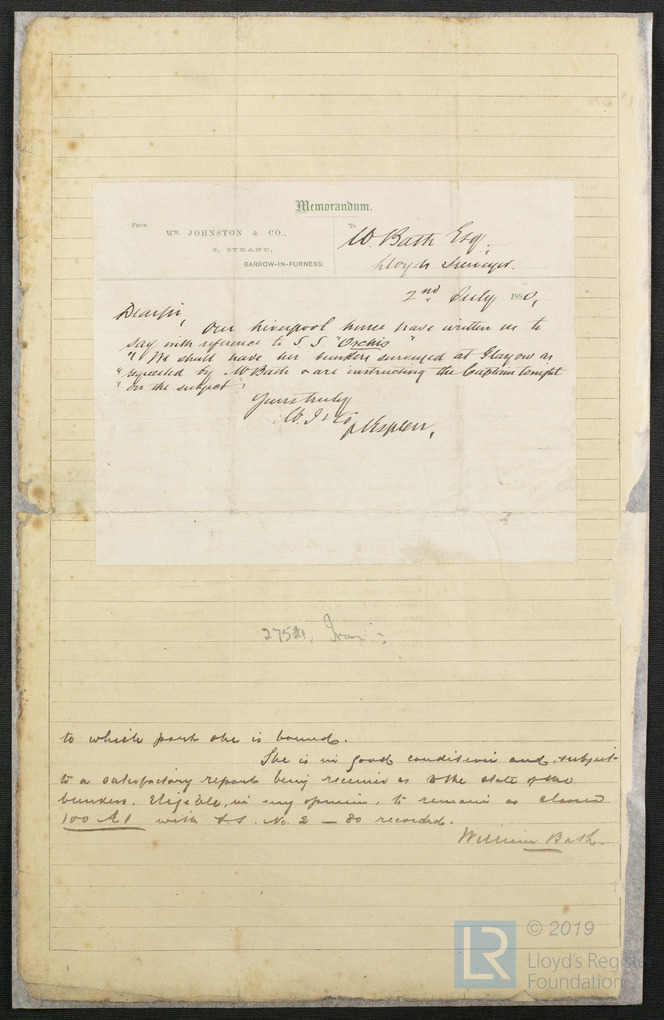 Memorandum.
From
Wm. JOHNSTON & CO.,
STRAND,
BARROW-IN-FURNESS.
To
W Bath Esq.
Lloyds Surveyor.
2nd July 1880,
Dear Sir,
Our Liverpool house have written us to
say with reference to S. S. "Orchis"
"We shall have her bunkers surveyed at Glasgow as
"requested by Mr Bath & are instructing the Captain tonight
"on the subject".
Yours truly
W. J & Co
27521, Iron
to which port she is bound.
She is in good condition and, subject
to a satisfactory report being received as to the state of the
bunkers. Eligible, in my opinion, to remain as classed
100 A1 with S.S. No. 2 - 80 recorded.
William Bath.
LR
© 2019
Lloyd's Register
Foundation